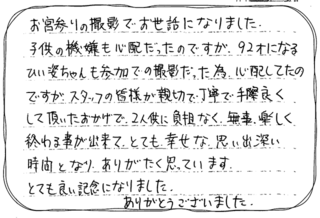 お宮参りの撮影でお世話になりました.
子供の機嫌も心配だったのですが、92才になる
ひい婆ちゃんも参加での撮影だった為、心配してたの
ですが、スタッフの皆様が親切で丁寧で手際良く
して頂いたおかげで、2人供に負担なく、無事、楽しく
終わる事が出来て、とても幸せな思い出深い
時間となり、ありがたく思っています.
とても良い記念になりました.
ありがとうございました.